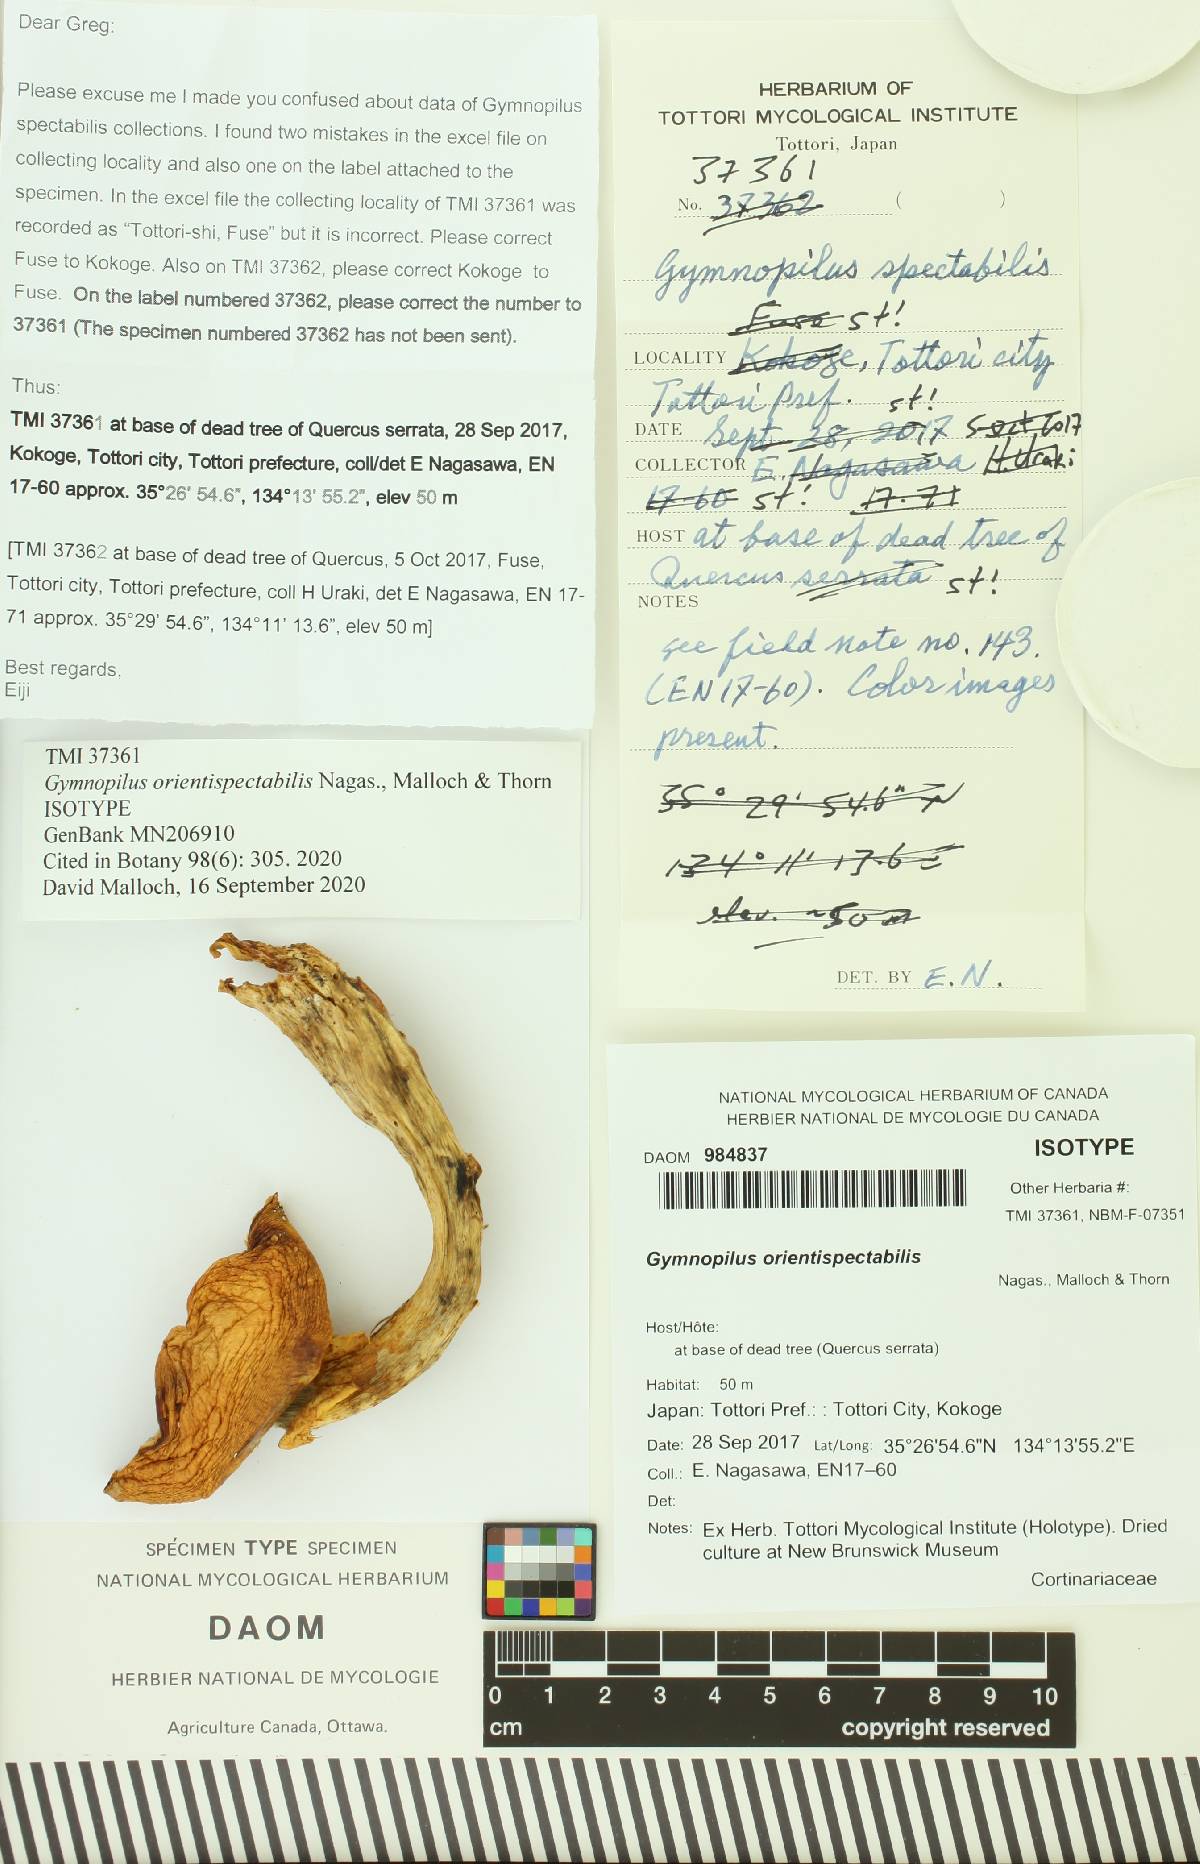 Dear Greg:
Please excuse me I made you confused about data of Gymnopilus
spectabilis collections. I found two mistakes in the excel file on
collecting locality and also one on the label attached to the
specimen. In the excel file the collecting locality of TMI 37361 was
recorded as “Tottori-shi, Fuse” but it is incorrect. Please correct
Fuse to Kokoge. Also on TMI 37362, please correct Kokoge to
Fuse. On the label numbered 37362, please correct the number to
37361 (The specimen numbered 37362 has not been sent).
Thus:
TMI 37361 at base of dead tree of Quercus serrata, 28 Sep 2017,
Kokoge, Tottori city, Tottori prefecture, coll/det E Nagasawa, EN
17-60 approx. 35°26' 54.6", 134°13' 55.2", elev 50 m
[TMI 37362 at base of dead tree of Quercus, 5 Oct 2017, Fuse,
Tottori city, Tottori prefecture, coll H Uraki, det E Nagasawa, EN 17-
71 approx. 35°29' 54.6”, 134°11' 13.6”, elev 50 m]
Best regards,
Eiji
HERBARIUM OF
TOTTORI MYCOLOGICAL INSTITUTE
Tottori, Japan
37361
No. 37362 ( )
Gymnopilus spectabilis
Fuse st!
LOCALITY Kokoge, Tottori city
Tottori Pref. st!
DATE Sept. 28, 2017 5 Oct 2017
COLLECTOR E. Nagasawa H. Uraki
17-60 st! 17-71
HOST at base of dead tree of
Quercus serrata st!
NOTES
see field note no. 143.
(EN 17-60). Color images
present.
35° 29' 54.6" N
134° 11' 13.6 E
elev. ~50 m
DET. BY E. N.
TMI 37361
Gymnopilus orientispectabilis Nagas., Malloch & Thorn
ISOTYPE
GenBank MN206910
Cited in Botany 98(6): 305. 2020
David Malloch, 16 September 2020
NATIONAL MYCOLOGICAL HERBARIUM OF CANADA
HERBIER NATIONAL DE MYCOLOGIE DU CANADA
DAOM 984837 ISOTYPE
Other Herbaria #:
TMI 37361, NBM-F-07351
Gymnopilus orientispectabilis
Nagas., Malloch & Thorn
Host/Hôte:
at base of dead tree (Quercus serrata)
Habitat: 50 m
Japan: Tottori Pref.: : Tottori City, Kokoge
Date: 28 Sep 2017 Lat/Long: 35°26'54.6"N 134°13'55.2"E
Coll.: E. Nagasawa, EN17–60
Det:
Notes: Ex Herb. Tottori Mycological Institute (Holotype). Dried
culture at New Brunswick Museum
Cortinariaceae
SPÉCIMEN TYPE SPECIMEN
NATIONAL MYCOLOGICAL HERBARIUM
DAOM
HERBIER NATIONAL DE MYCOLOGIE
Agriculture Canada, Ottawa.
0 1 2 3 4 5 6 7 8 9 10
cm copyright reserved